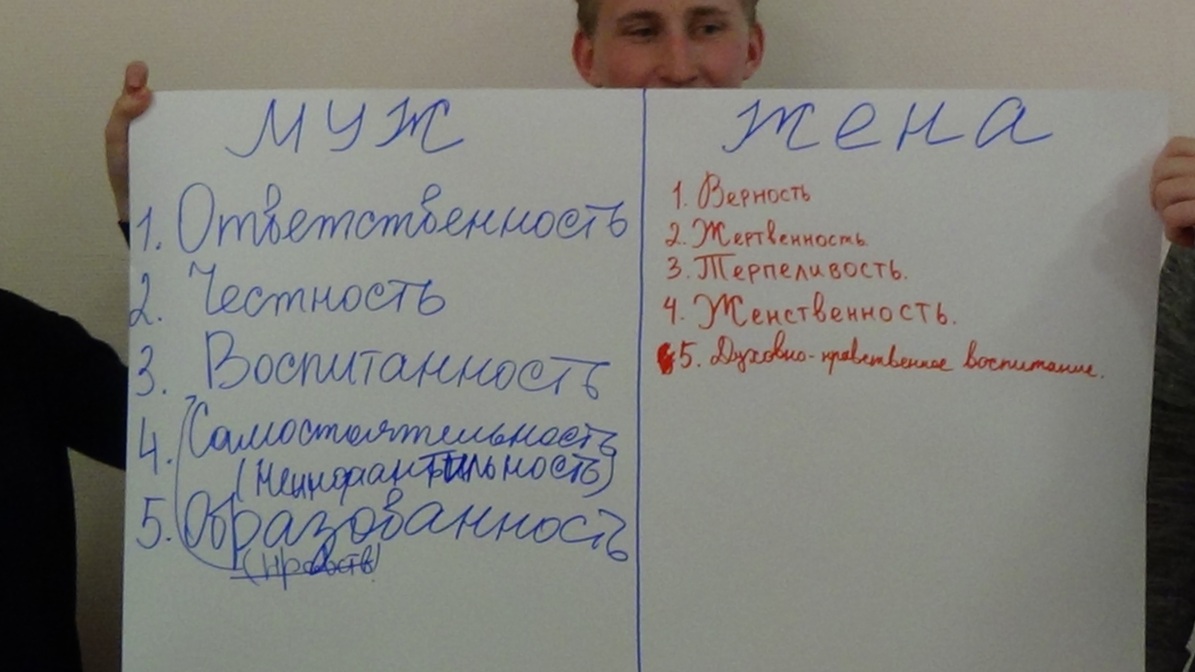 МУЖ
1. Ответственность
2. Честность
3. Воспитанность
4. Самостоятельность
(Неинфантильность)
5. Образованность
(нравств)
жена
1. Верность
2. Жертвенность.
3. Терпеливость.
4. Женственность.
5. Духовно-нравственное воспитание.